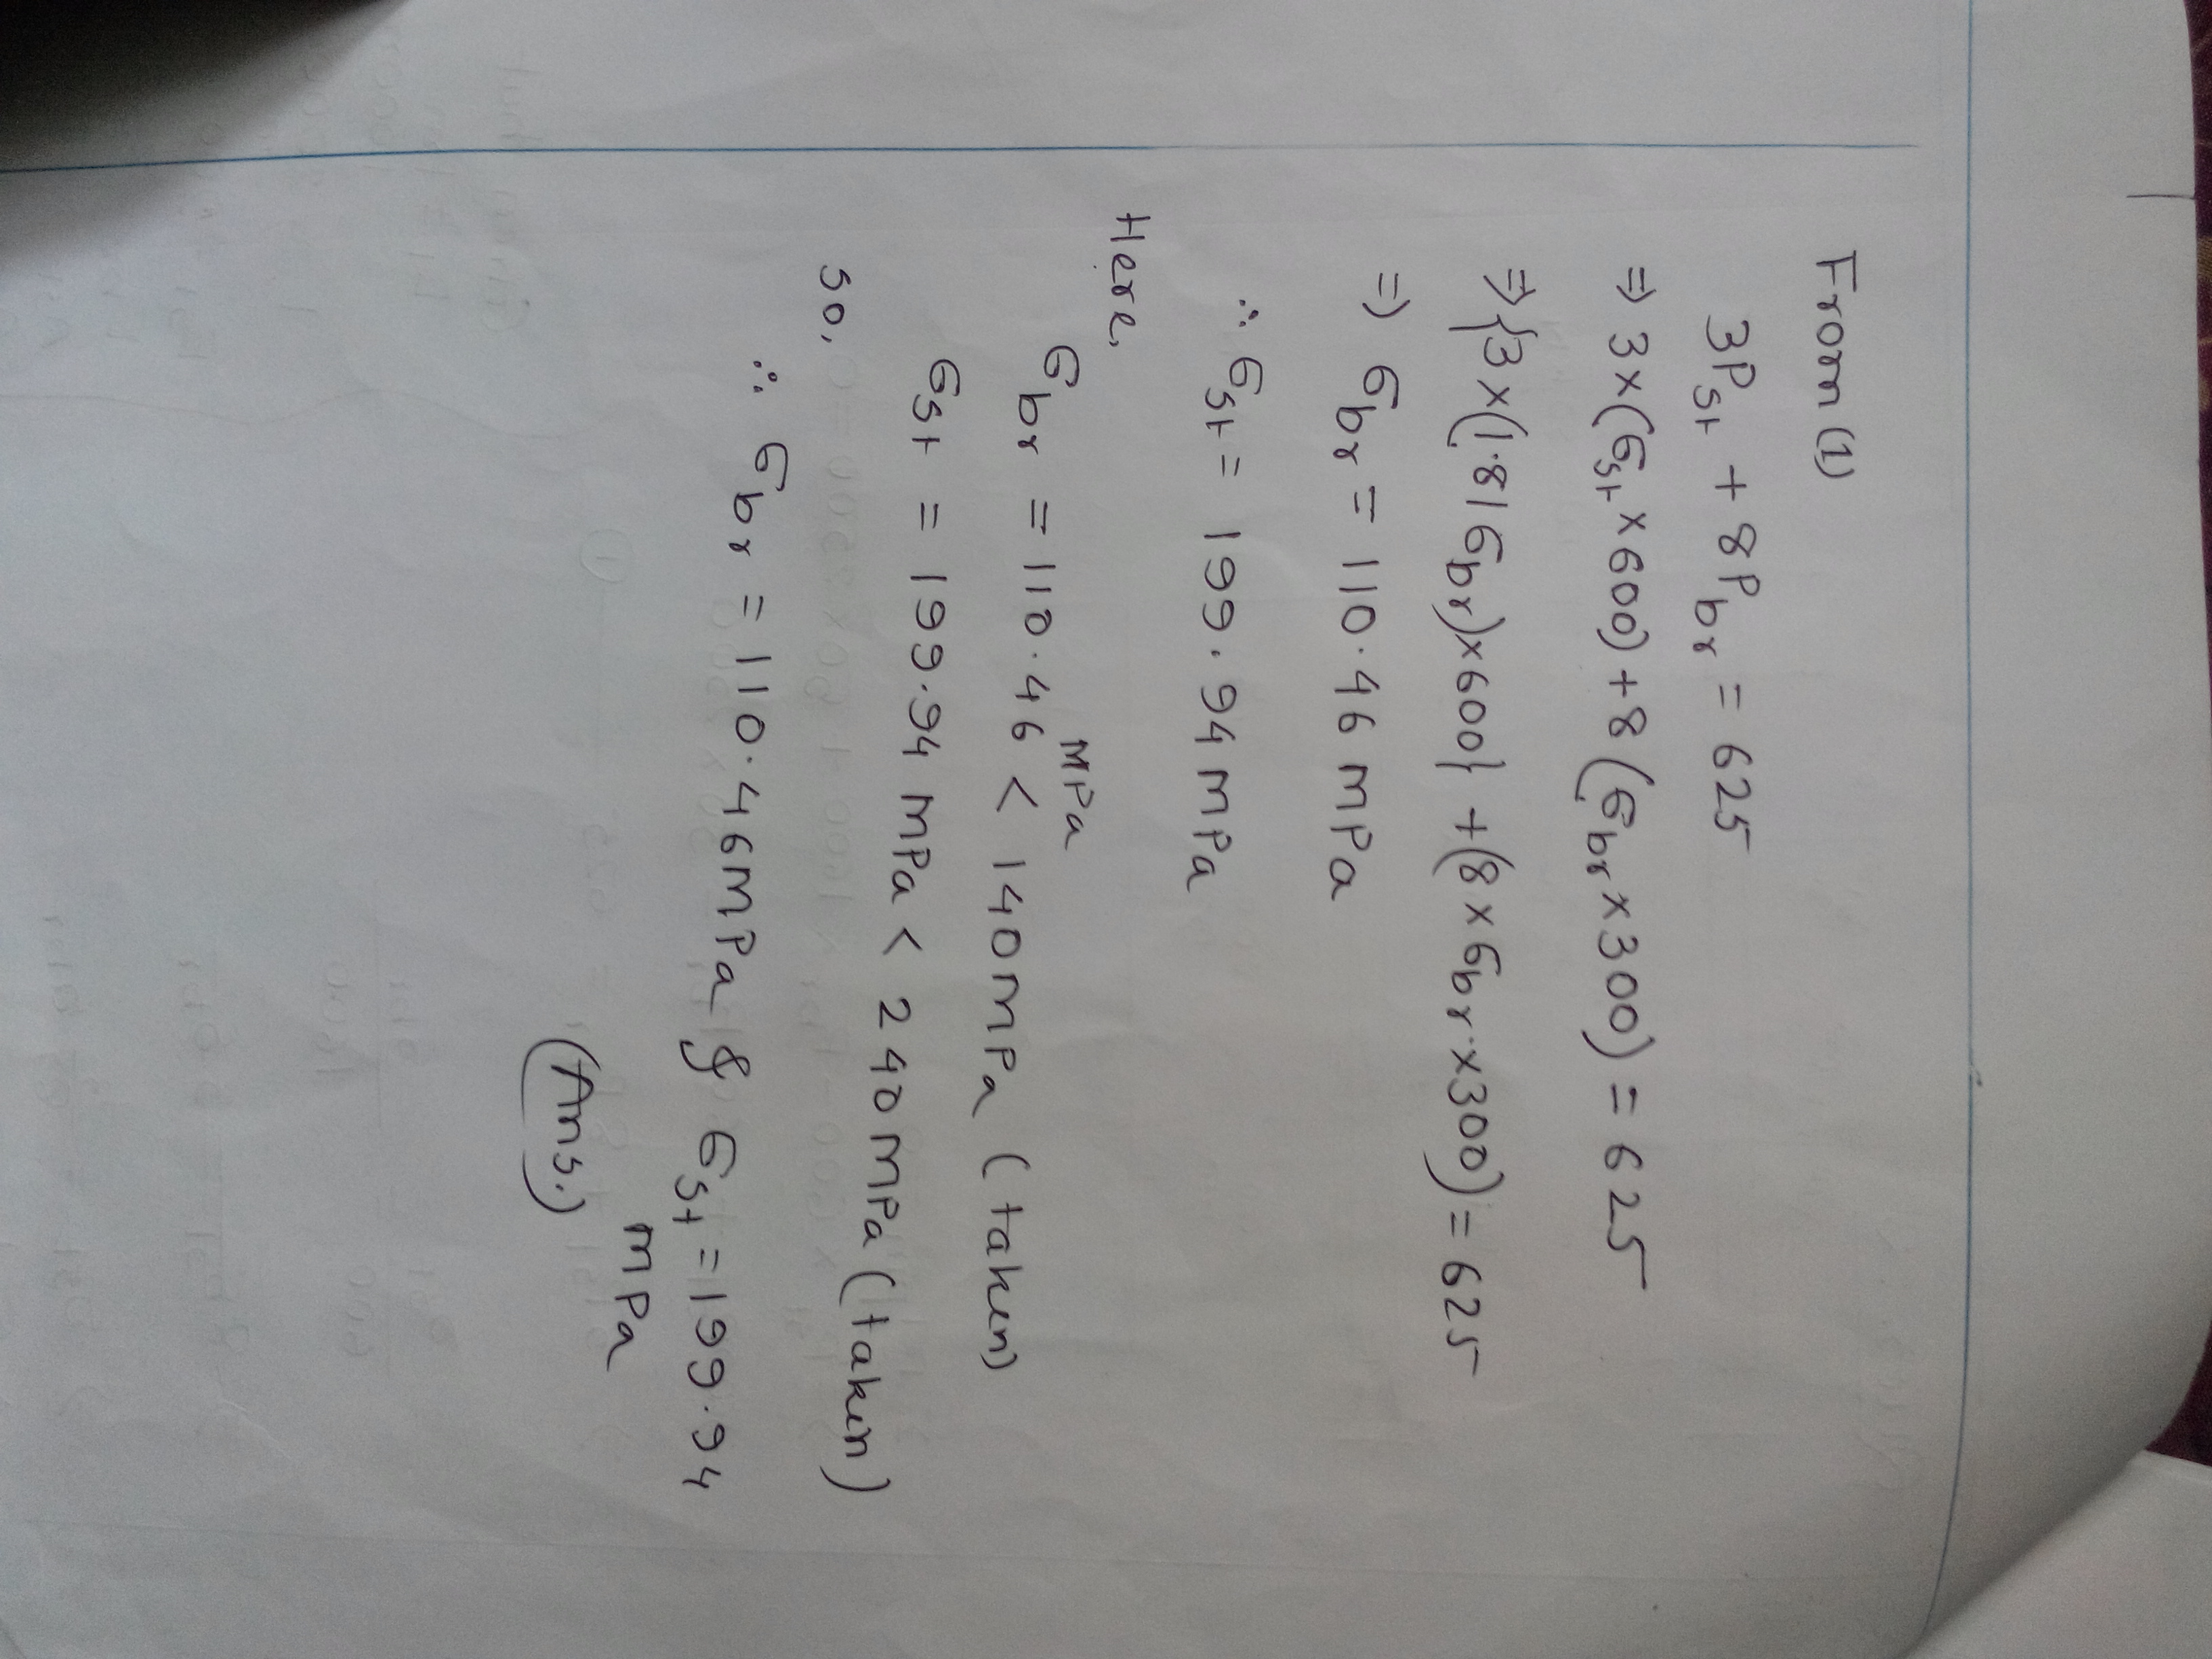 From (1)
3P_st + 8P_br = 625
⇒ 3×(σ_st×600)+8(σ_br×300) = 625
⇒{3×(1.81σ_br)×600} +(8×σ_br×300)=625
⇒ σ_br = 110.46 mPa
∴ σ_st = 199.94 mPa
Here,
σ_br = 110.46 MPa < 140mPa (taken)
σ_st = 199.94 mPa < 240mPa (taken)
so,
∴ σ_br = 110.46mPa & σ_st = 199.94 mPa
(Ans.)